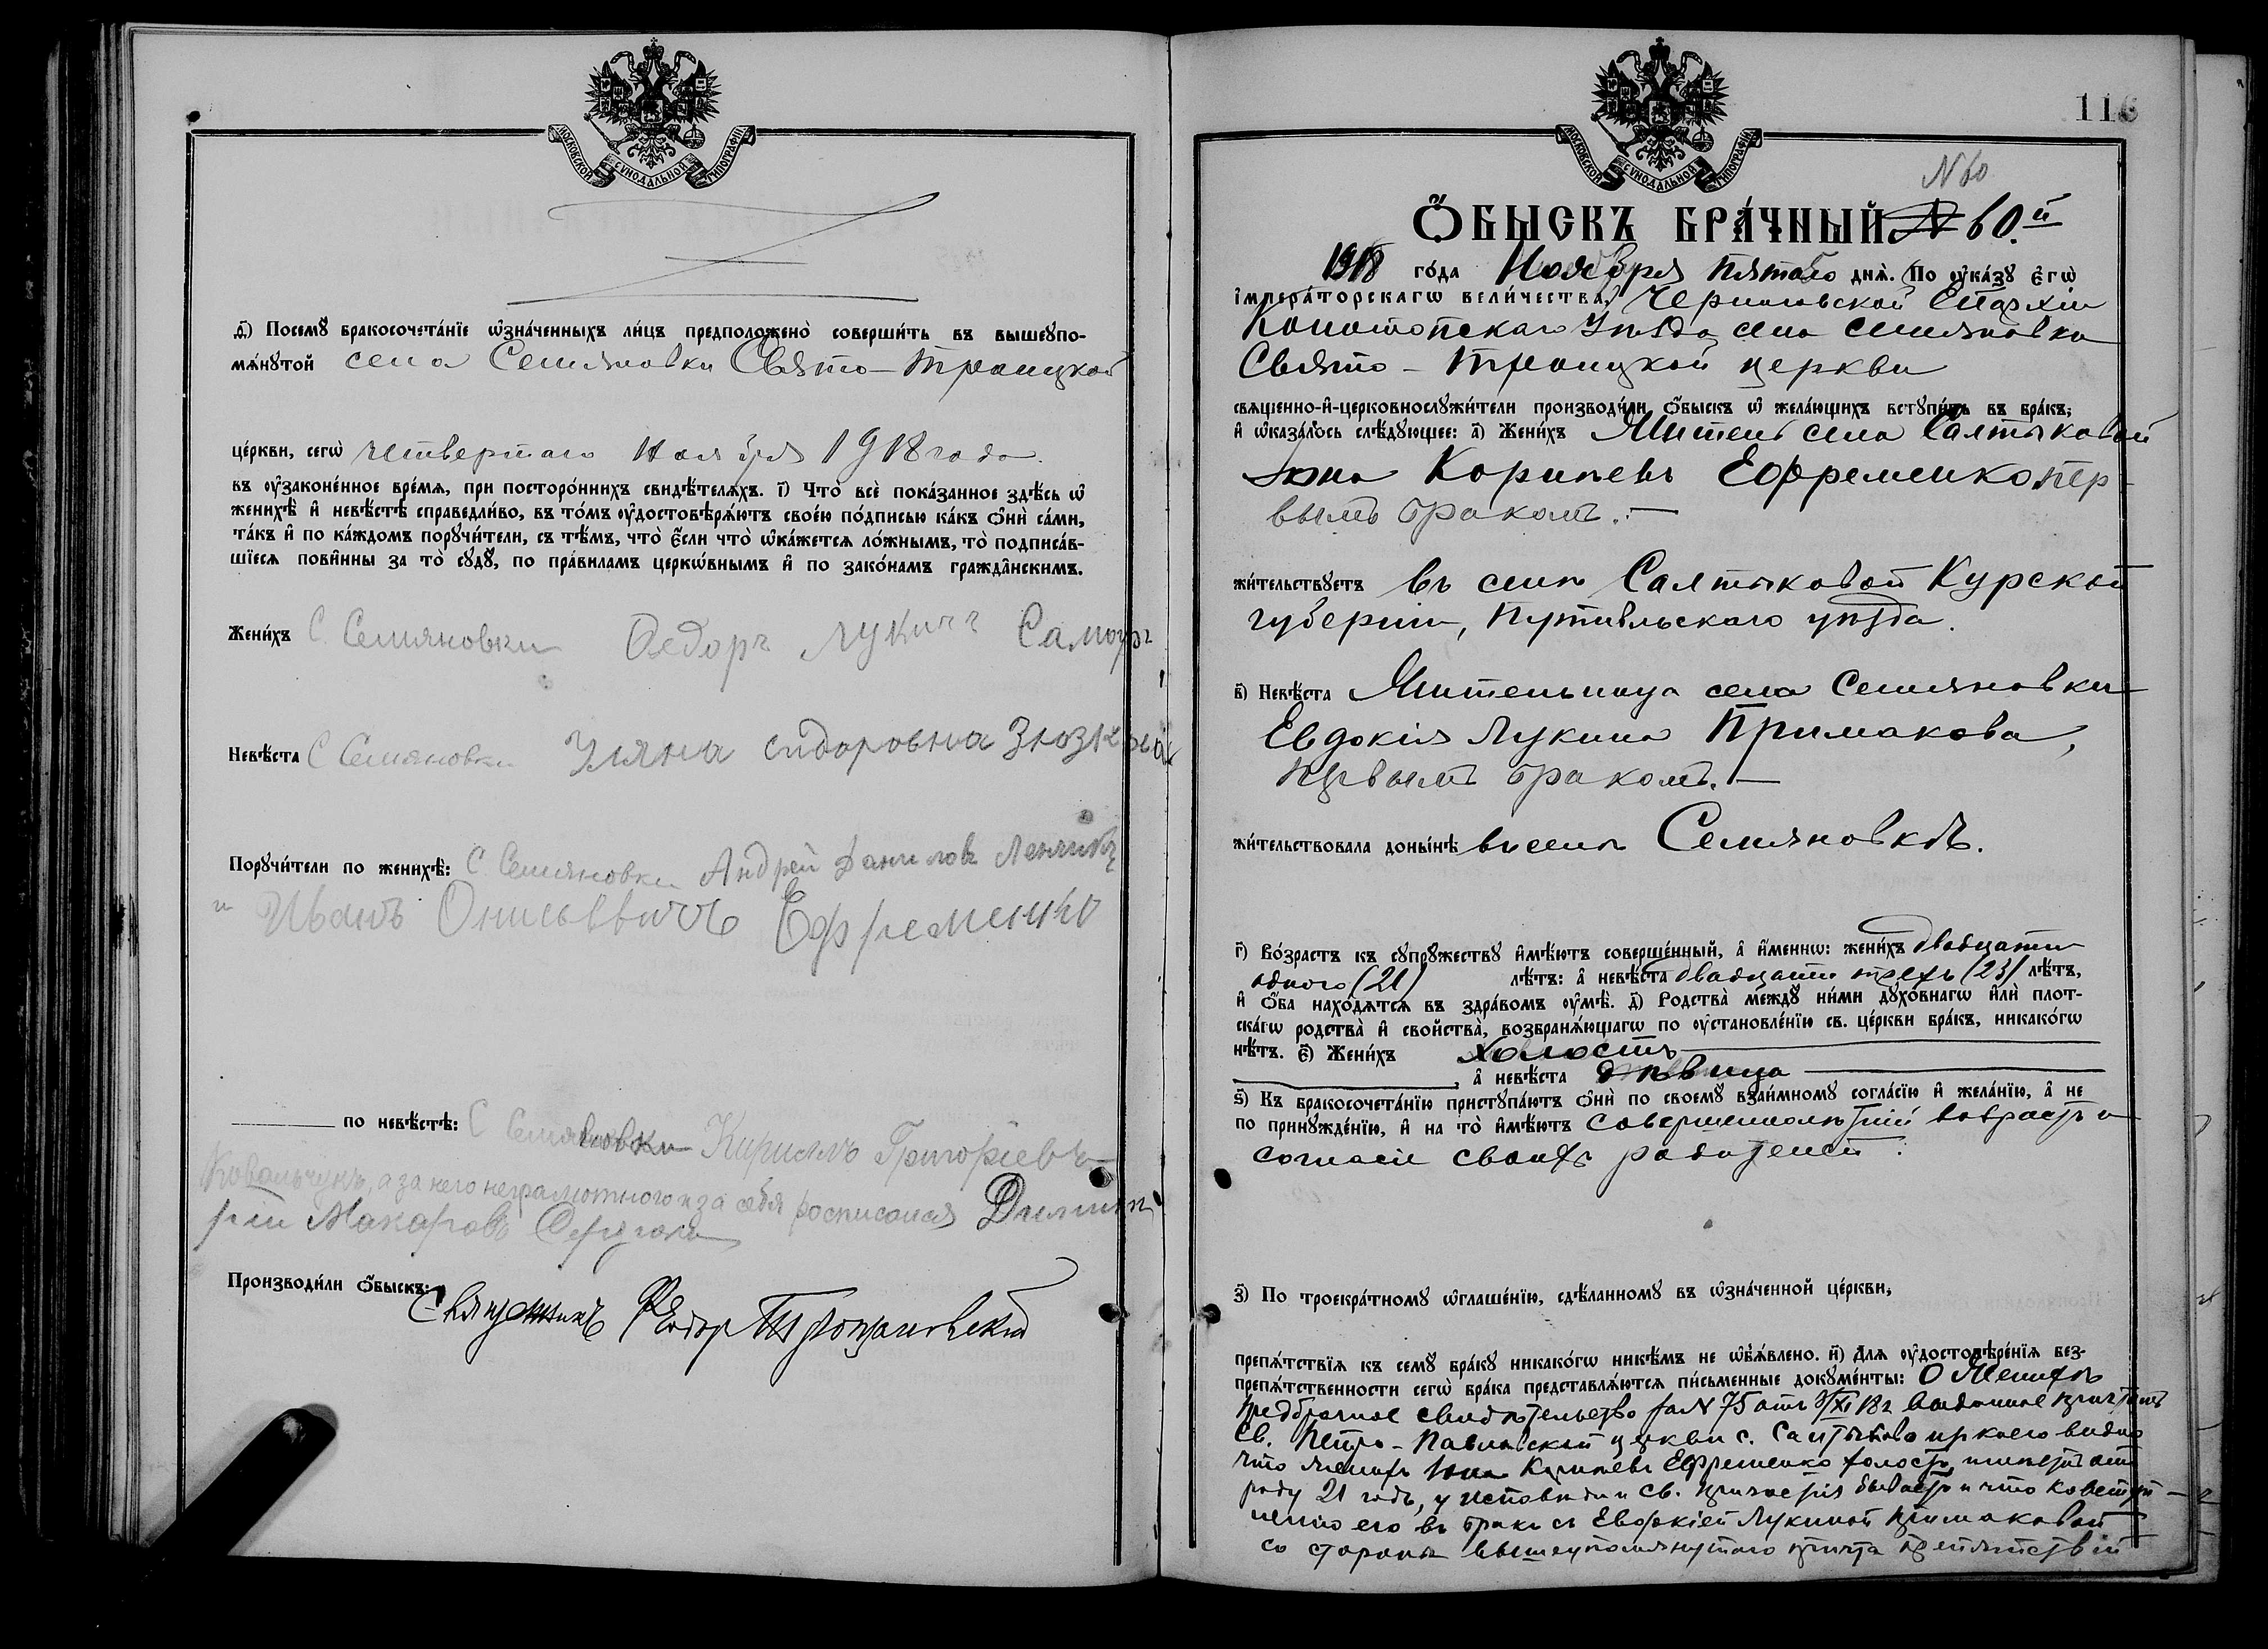 МОСКОВСКОЙ СУНОДАЛЬНОЙ ТИПОГРАФІИ
д҃) Посемꙋ̀ бракосочета́нїе ѡ҆зна́ченныхъ ли́цъ предположено̀ соверши́ть въ вышеꙋпо-
мѧ́нꙋтой села Семяновки Свято-Троицкой
це́ркви, сегѡ̀ четвертаго Ноября 1918 года
въ ᲂу҆законе́нное вре́мѧ, при посторо́ннихъ свидѣ́телѧхъ. і҃) Что̀ всѐ пока́занное здѣ́сь ѡ҆
женихѣ̀ и҆ невѣ́стѣ справедли́во, въ то́мъ ᲂу҆достовѣрѧ́ютъ свое́ю по́дписью ка́къ ѻ҆нѝ са́ми,
та́къ и҆ по ка́ждомъ порꙋчи́тели, съ тѣ́мъ, что̀ є҆́сли что̀ ѡ҆ка́жетсѧ ло́жнымъ, то̀ подписа́в-
шїесѧ пови́нны за то̀ сꙋдꙋ̀, по пра́виламъ церко́внымъ и҆ по зако́намъ гражда́нскимъ.
Жени́хъ С. Семяновки Ѳедоръ Лукичъ
Невѣ́ста С Семяновки Уляна сидоровна
Порꙋчи́тели по женихѣ̀: С Семяновки Андрей Даниловъ
и Иванъ Ефременко
по невѣ́стѣ: С Семяновки Кириллъ Григоріевъ
Ковальчукъ, а за него неграмотного и за себя росписался Дмит
рій Макаровъ
Производи́ли ѻ҆́быскъ: Священникъ Ѳеодор
116
N 60
МОСКОВСКОЙ СУНОДАЛЬНОЙ ТИПОГРАФІИ
Ѻ҆́БЫСКЪ БРА́ЧНЫЙ N 60.й
1918 го́да Ноября пятаго днѧ̀. По ᲂу҆ка́зꙋ є҆гѡ̀
і҆мпера́торскагѡ вели́чества, Черниговской Епархіи
Конотопскаго Уѣзда, села Семяновки
Свято-Троицкой церкви
свѧще́нно-и҆-церковнослꙋжи́тели производи́ли ѻ҆́быскъ ѡ҆ жела́ющихъ встꙋпи́ть въ бра́къ;
и҆ ѡ҆каза́лось слѣ́дꙋющее: а҃) Жени́хъ Житель села Салтыковой
Іона Корнѣевъ Ефременко, пер-
вымъ бракомъ. —
жи́тельствꙋетъ въ селѣ Салтыковой Курской
губерніи, Путивльскаго уѣзда.
в҃) Невѣ́ста Жительница села Семяновки
Евдокія Лукина Примакова,
первымъ бракомъ. —
жи́тельствовала доны́нѣ въ селѣ Семяновкѣ.
г҃) Во́зрастъ къ сꙋпрꙋ́жествꙋ и҆мѣ́ютъ соверше́нный, а҆ и҆́меннѡ: жени́хъ двадцати
одного (21) лѣ́тъ: а҆ невѣ́ста двадцати трехъ (23) лѣ́тъ,
и҆ ѻ҆́ба нахо́дѧтсѧ въ здра́вомъ ᲂу҆мѣ̀. д҃) Родства̀ междꙋ̀ ни́ми дꙋхо́внагѡ и҆лѝ пло́т-
скагѡ родства̀ и҆ сво́йства̀, возбранѧ́ющагѡ по ᲂу҆становле́нїю св. це́ркви бра́къ, никако́гѡ
нѣ́тъ. є҃) Жени́хъ холостъ
, а҆ невѣ́ста дѣвица
ѕ҃) Къ бракосочета́нїю пристꙋпа́ютъ ѻ҆нѝ по своемꙋ̀ взаи́мномꙋ согла́сїю и҆ жела́нїю, а҆ не
по принꙋжде́нїю, и҆ на то̀ и҆мѣ́ютъ совершеннолѣтній возрастъ и
согласіе своихъ родителей.
з҃) По троекра́тномꙋ ѡ҆глаше́нїю, сдѣ́ланномꙋ въ ѡ҆зна́ченной це́ркви,
препѧ́тствїѧ къ семꙋ̀ бра́кꙋ никако́гѡ никѣ́мъ не ѡ҆б̾ѧ́влено. и҃) Для ᲂу҆достовѣре́нїѧ без-
препѧ́тственности сегѡ̀ бра́ка представлѧ́ютсѧ пи́сьменные докꙋме́нты: О Женихѣ
Предбрачное свидѣтельство за N 75 отъ XI 18 г. выданное причтомъ
Св. Петро-Павловской церкви с. Салтыкова изъ коего видно
что женихъ Іона Корнѣевъ Ефременко холостъ, имѣетъ отъ
роду 21 годъ, у исповѣди и св. причастія бываетъ и что ко вступ-
ленію его въ бракъ съ Евдокіей Лукиной Примаковой
со стороны вышеупомянутаго причта препятствій